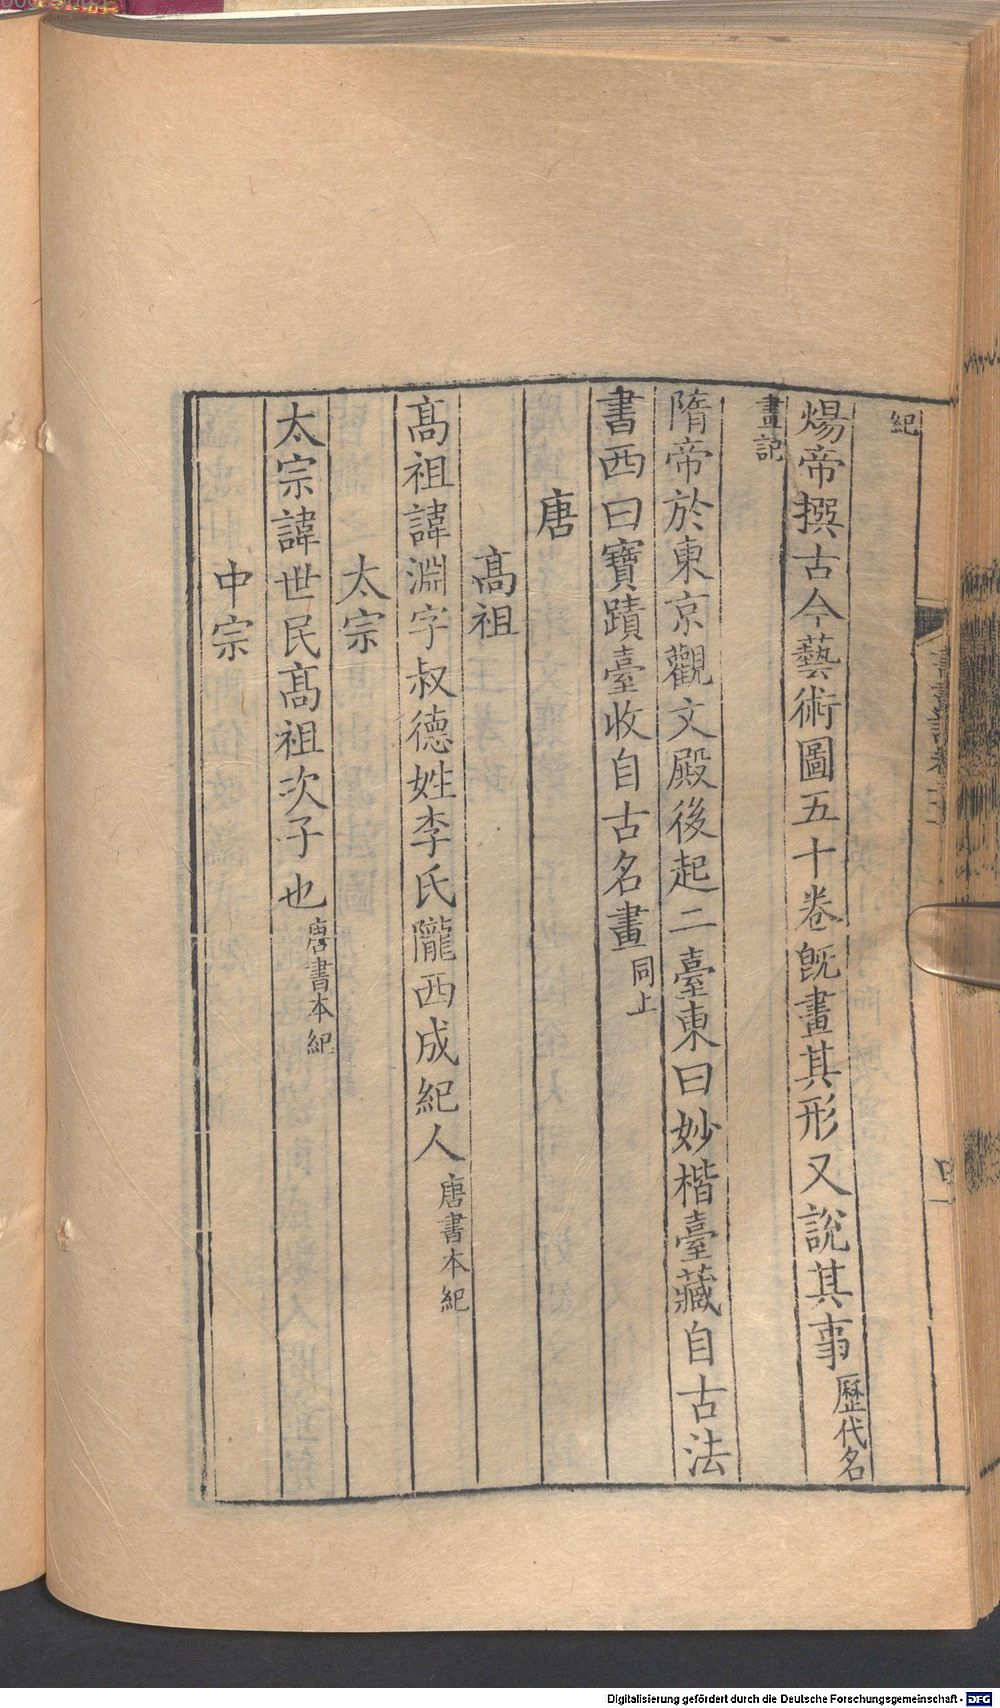 紀
煬帝撰古今藝術圖五十卷旣畫其形又說其事歷代名
畫記
隋帝於東京觀文殿後起二臺東曰妙楷臺藏自古法
書西曰寶蹟臺收自古名畫同上
唐
高祖
高祖諱淵字叔德姓李氏隴西成紀人唐書本紀
太宗
太宗諱世民高祖次子也唐書本紀
中宗
Digitalisierung gefördert durch die Deutsche Forschungsgemeinschaft - DFG